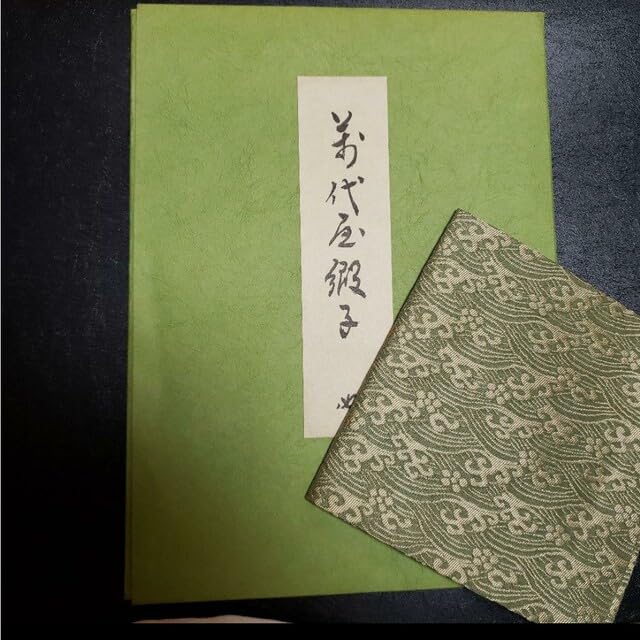 萬代屋緞子